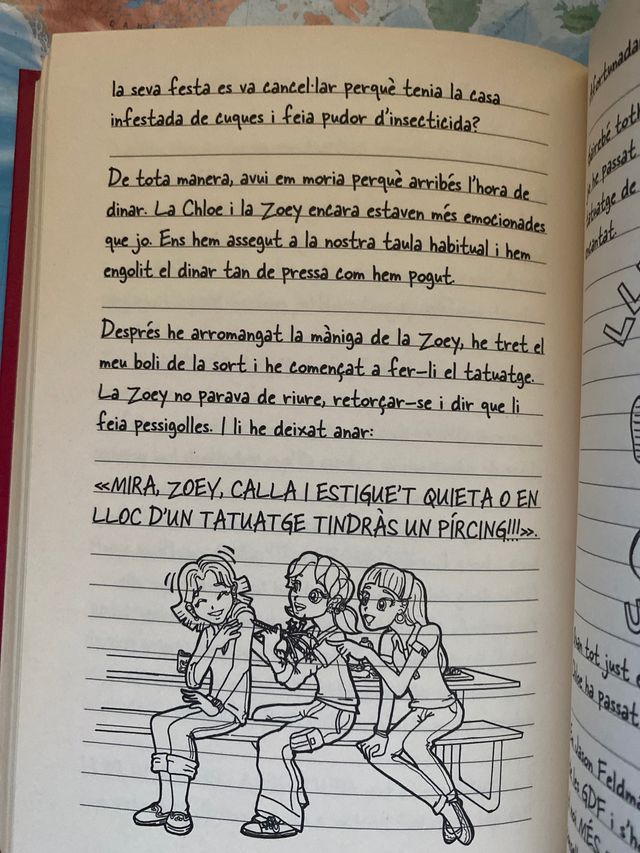 la seva festa es va cancel·lar perquè tenia la casa
infestada de cuques i feia pudor d'insecticida?
De tota manera, avui em moria perquè arribés l'hora de
dinar. La Chloe i la Zoey encara estaven més emocionades
que jo. Ens hem assegut a la nostra taula habitual i hem
engolit el dinar tan de pressa com hem pogut.
Després he arromangat la màniga de la Zoey, he tret el
meu boli de la sort i he començat a fer-li el tatuatge.
La Zoey no parava de riure, retorçar-se i dir que li
feia pessigolles. I li he deixat anar:
«MIRA, ZOEY, CALLA I ESTIGUE'T QUIETA O EN
LLOC D'UN TATUATGE TINDRÀS UN PÍRCING!!!».
he passat
tatuatge de
tot just
ha passat
Jason
les GDF i s'h
MÉS